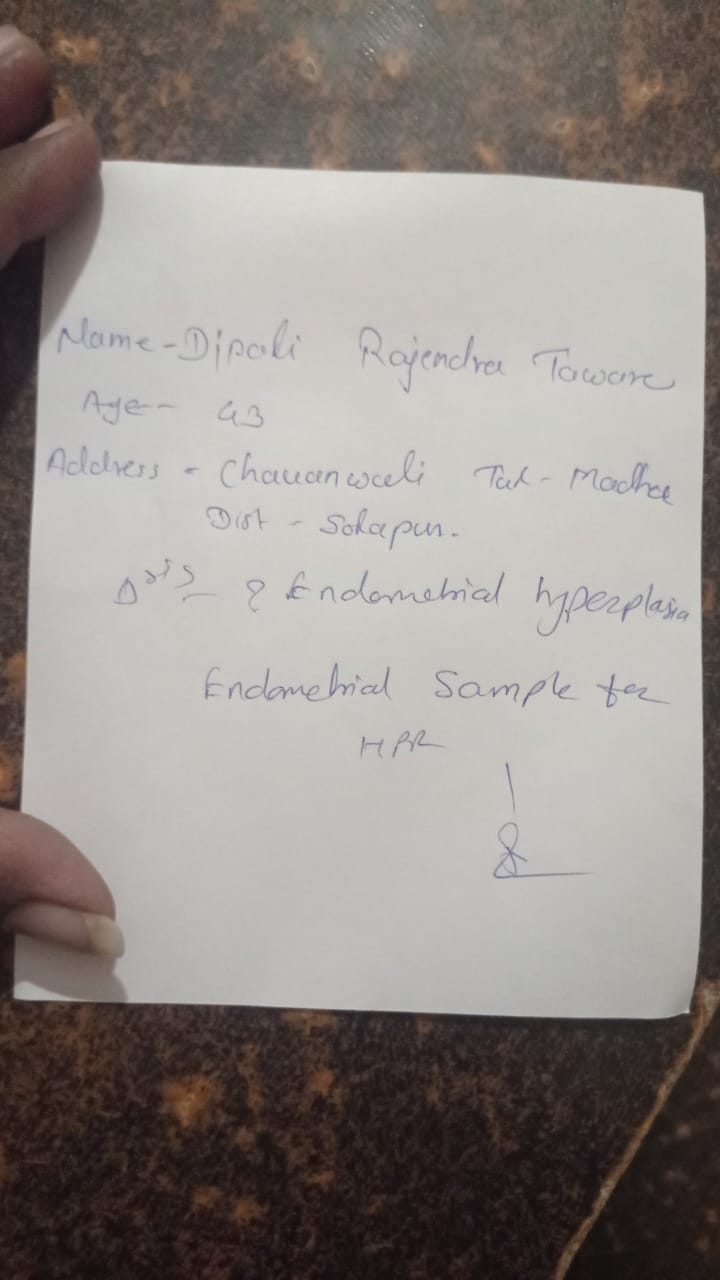 Name - Dipali Rajendra Taware
Age - 43
Address - Chavanwadi Tal - Madha
Dist - Solapur.
Δsis - ? Endometrial hyperplasia
Endometrial Sample for
HPR